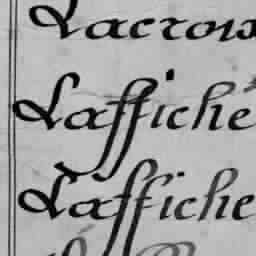 Lacroix
Laffiché
Laffiche